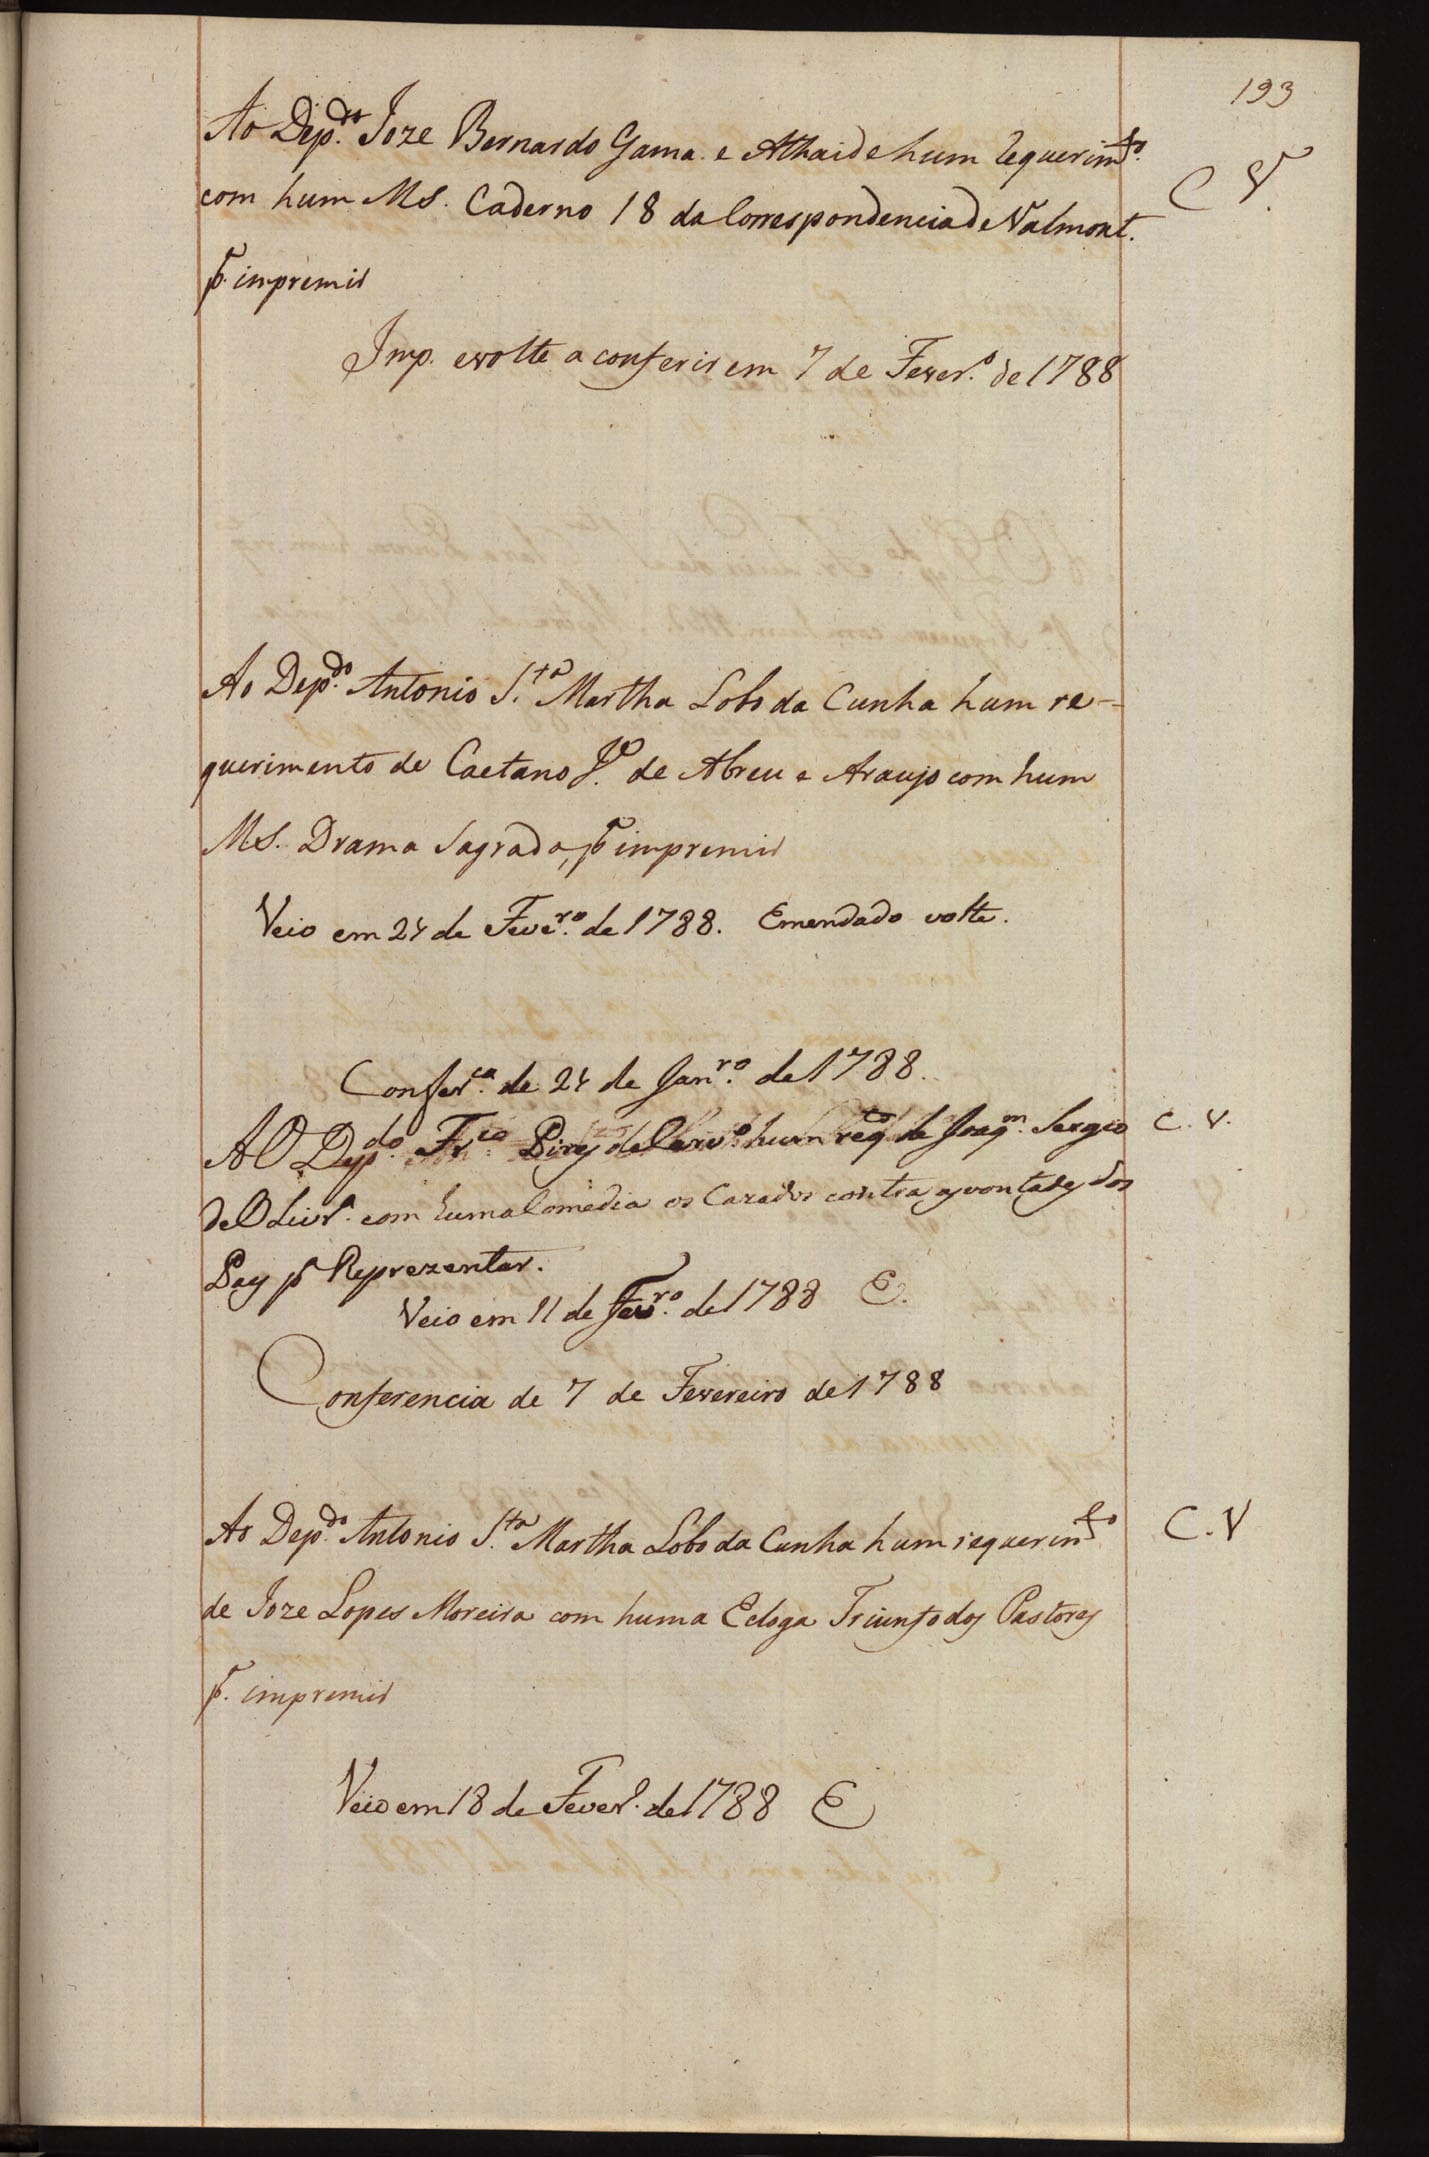 193
Ao Dep.do Joze Bernardo Gama e Athaide hum requerim.to
C V.
com hum MS. Caderno 18 da Correspondencia de Valmont.
p.a imprimir
Imp. e volte a conferir em 7 de Fever.o de 1788
Ao Dep.do Antonio S.ta Martha Lobo da Cunha hum re-
querimento de Caetano J.e de Abreu e Araujo com hum
MS. Drama Sagrado, p.a imprimir
Veio em 24 de Fever.ro de 1788. Emendado volte.
Confer.ca de 24 de Jan.ro de 1788.
AO Dep.do Fr.co Pires de Carv.o hum req.to de Joaq.m Sergio
C. V.
de Oliv.a com huma Comedia os Cazados contra as vontades dos
Pays p.a Reprezentar.
Veio em 11 de Fev.ro de 1788 E.
Conferencia de 7 de Fevereiro de 1788
Ao Dep.do Antonio S.ta Martha Lobo da Cunha hum requerim.to
C. V
de Joze Lopes Moreira com huma Ecloga Triunfo dos Pastores
p.a imprimir
Veio em 18 de Fever.o de 1788 E